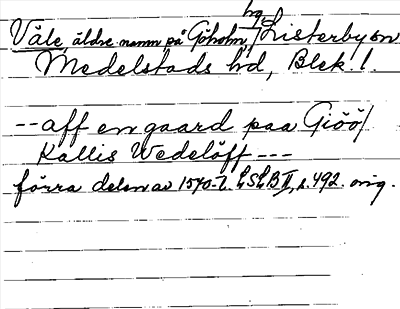 Väle, äldre namn på Göholm, hg, Listerby sn
Medelstads hd, Blek. l.
-- aff en gaard paa Giöö/
Kallis Wedelöff ---
förra delen av 1540-t. LSLB II, s. 492. orig.